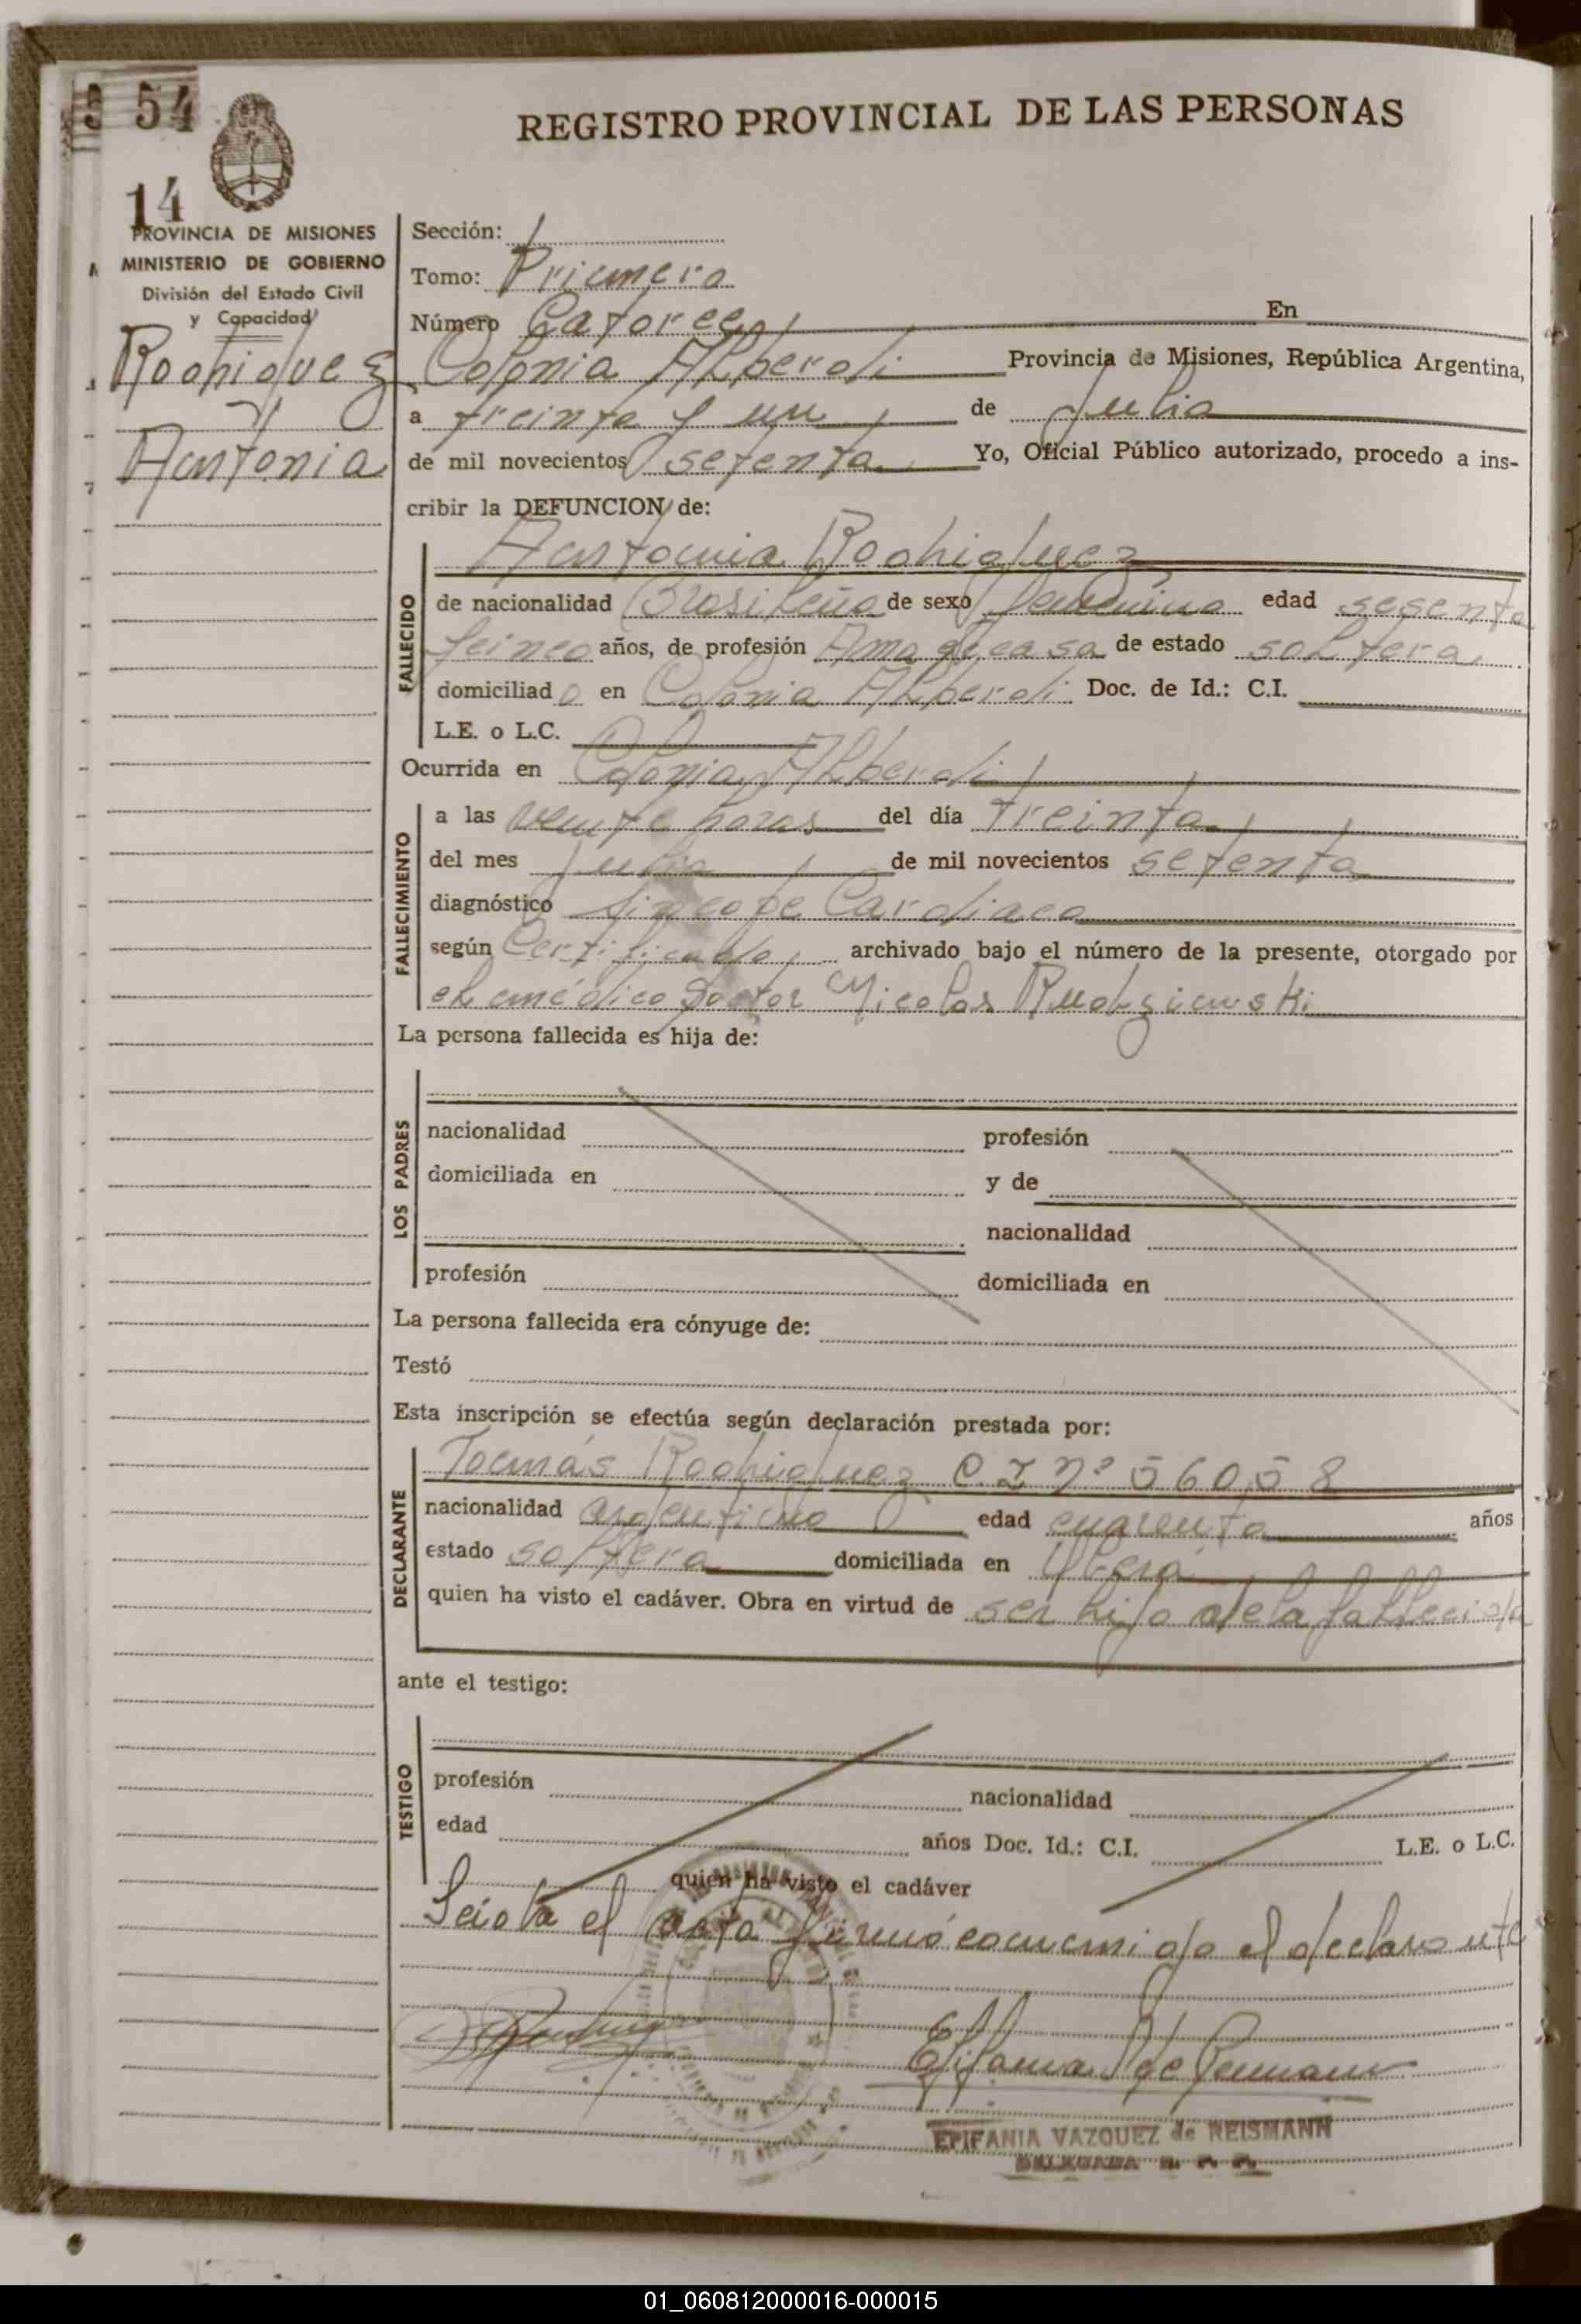 54
14
REGISTRO PROVINCIAL DE LAS PERSONAS
PROVINCIA DE MISIONES
MINISTERIO DE GOBIERNO
División del Estado Civil
y Capacidad
Rodriguez
Antonia
Sección:
Tomo: Primero
Número Catorce En
Colonia Alberdi Provincia de Misiones, República Argentina,
a treinta y un de Julio
de mil novecientos setenta Yo, Oficial Público autorizado, procedo a ins-
cribir la DEFUNCION de:
Antonia Rodriguez
FALLECIDO
de nacionalidad Brasileña de sexo femenino edad sesenta
y cinco años, de profesión Ama de casa de estado soltera
domiciliado en Colonia Alberdi Doc. de Id.: C.I.
L.E. o L.C.
Ocurrida en Colonia Alberdi
FALLECIMIENTO
a las veinte horas del día treinta
del mes Julio de mil novecientos setenta
diagnóstico Sincope Cardiaco
según Certificado archivado bajo el número de la presente, otorgado por
el médico Doctor Nicolas
La persona fallecida es hija de:
LOS PADRES
nacionalidad profesión
domiciliada en y de
nacionalidad
profesión domiciliada en
La persona fallecida era cónyuge de:
Testó
Esta inscripción se efectúa según declaración prestada por:
DECLARANTE
Tomás Rodriguez C.I Nº 560,58
nacionalidad argentino edad cuarenta años
estado soltero domiciliada en Oberá
quien ha visto el cadáver. Obra en virtud de ser hijo de la fallecida
ante el testigo:
TESTIGO
profesión nacionalidad
edad años Doc. Id.: C.I. L.E. o L.C.
quien ha visto el cadáver
Leida el acta firmó conmigo el declarante
EPIFANIA VAZQUEZ de REISMANN
DELEGADA R. P. P.
01_060812000016-000015